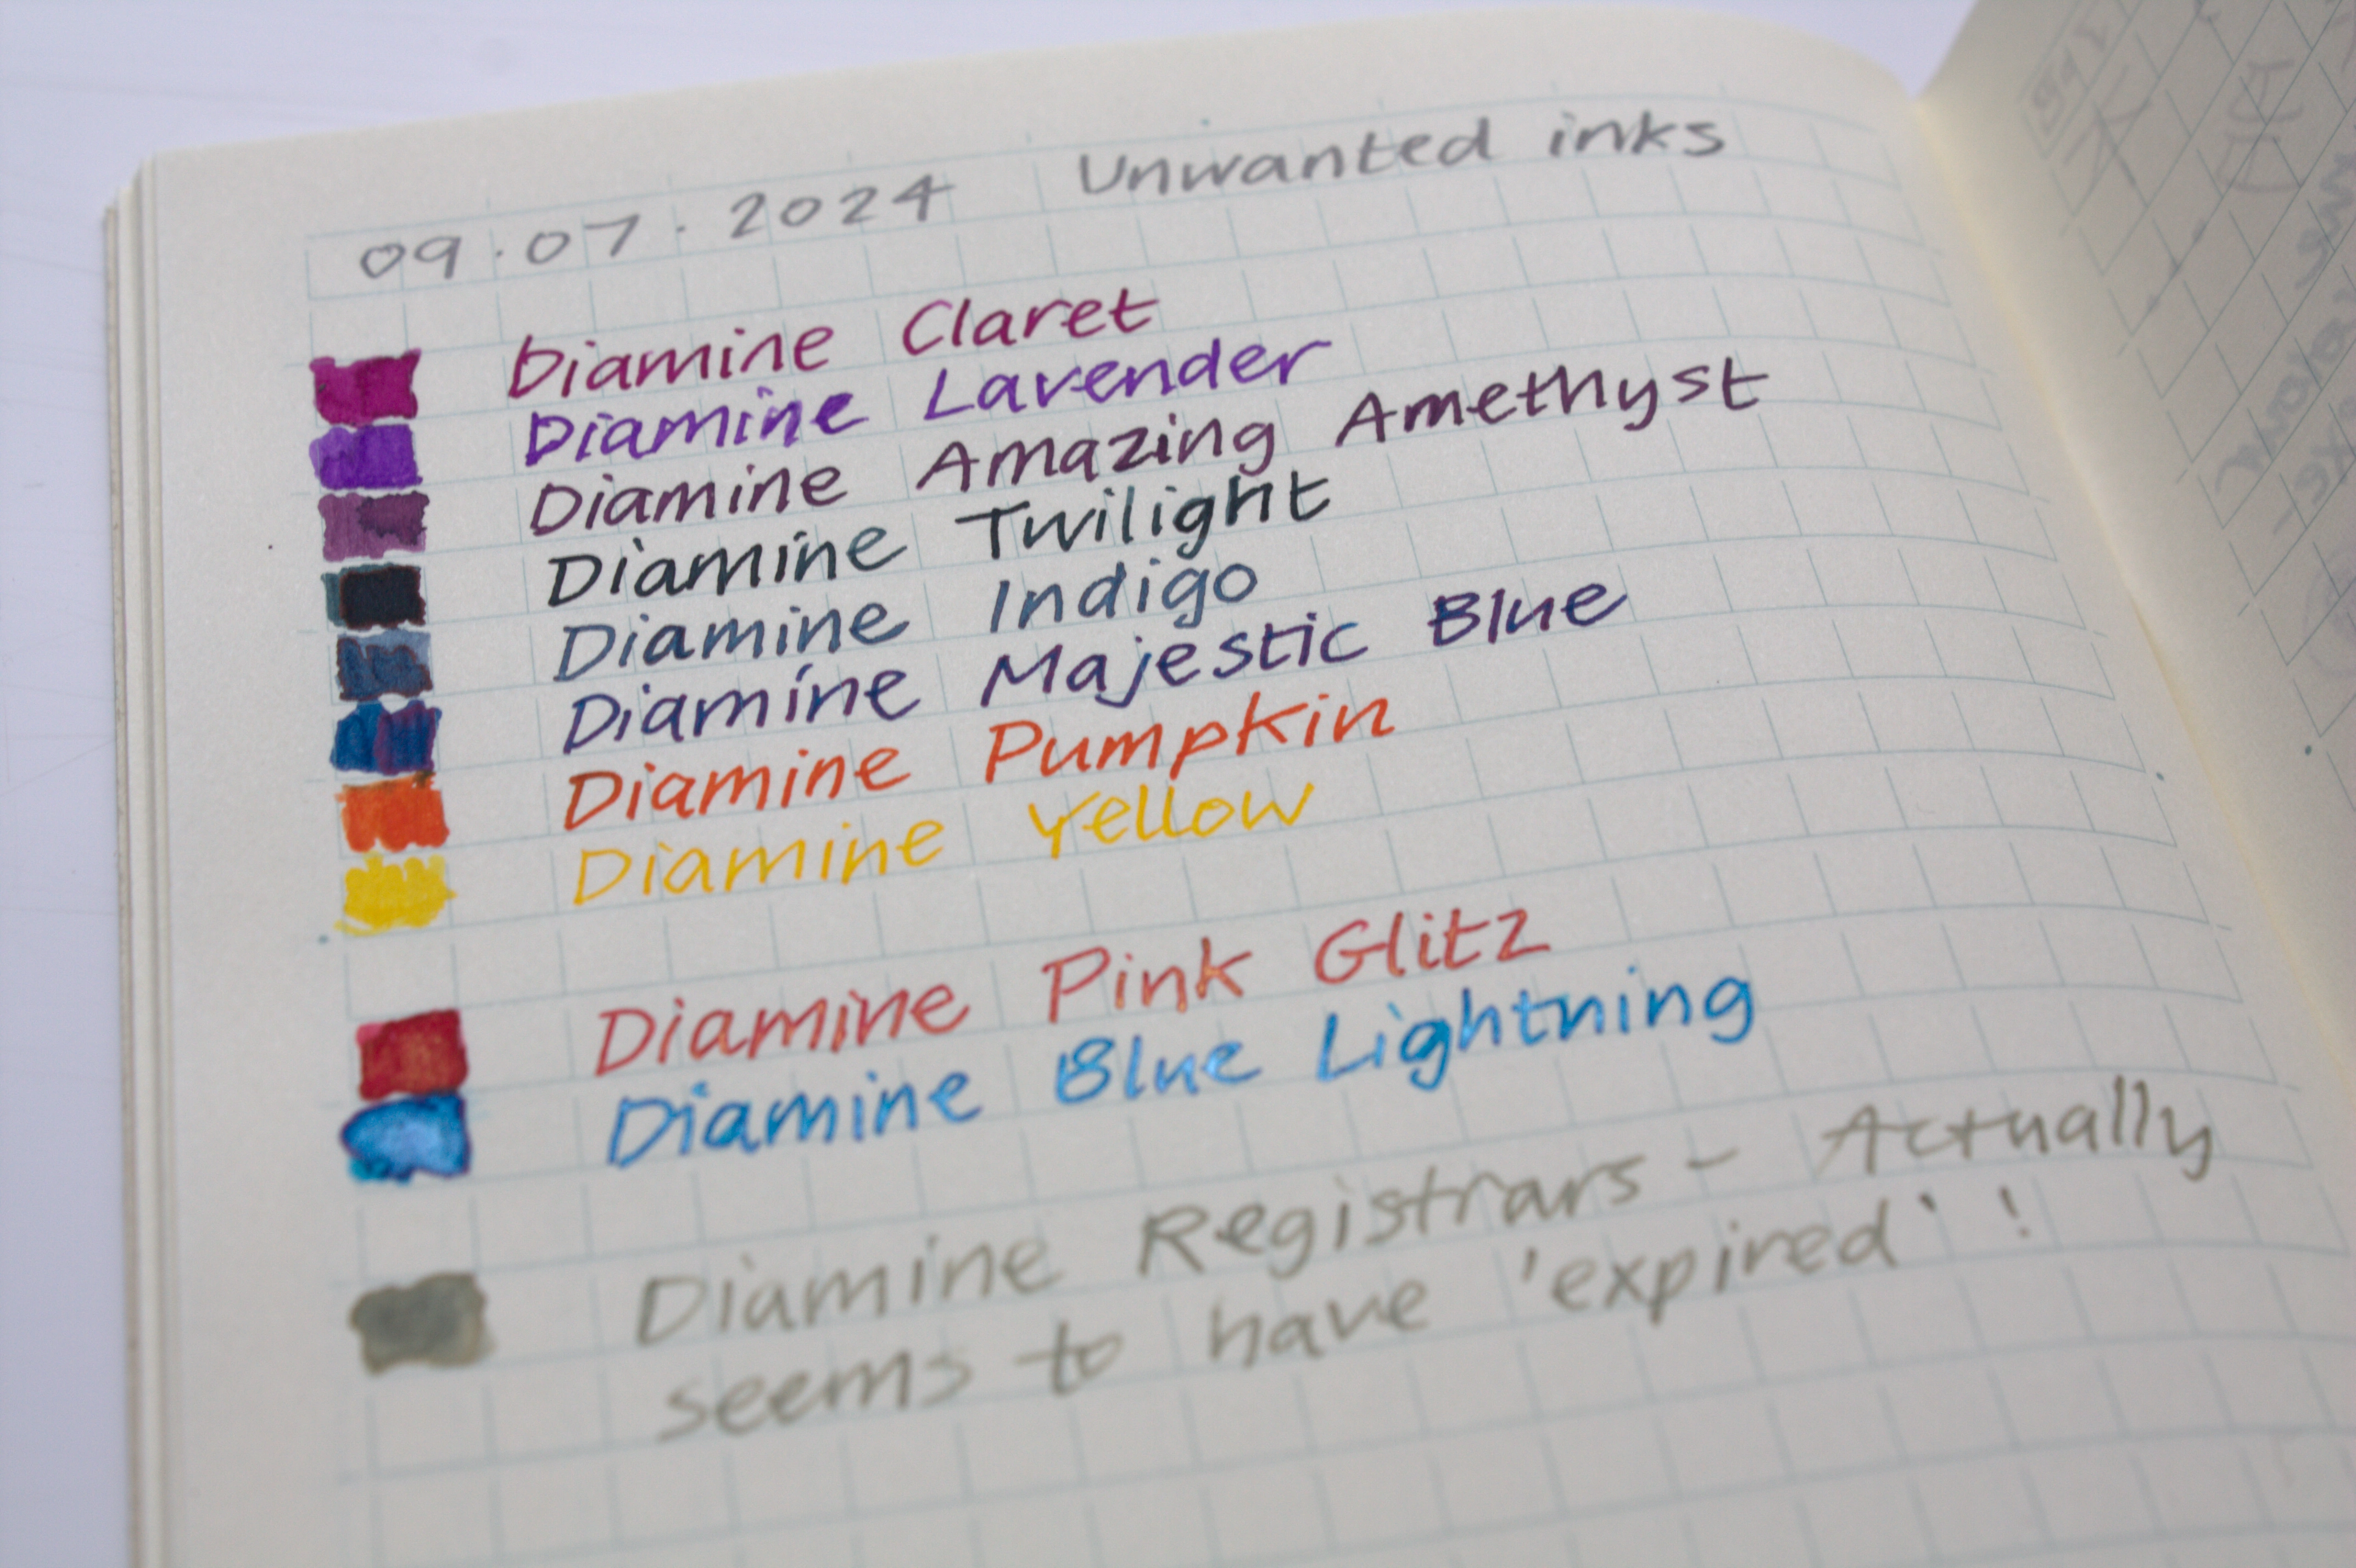 09.07.2024 Unwanted inks
Diamine Claret
Diamine Lavender
Diamine Amazing Amethyst
Diamine Twilight
Diamine Indigo
Diamine Majestic Blue
Diamine Pumpkin
Diamine Yellow
Diamine Pink Glitz
Diamine Blue Lightning
Diamine Registrars - Actually
seems to have 'expired' !